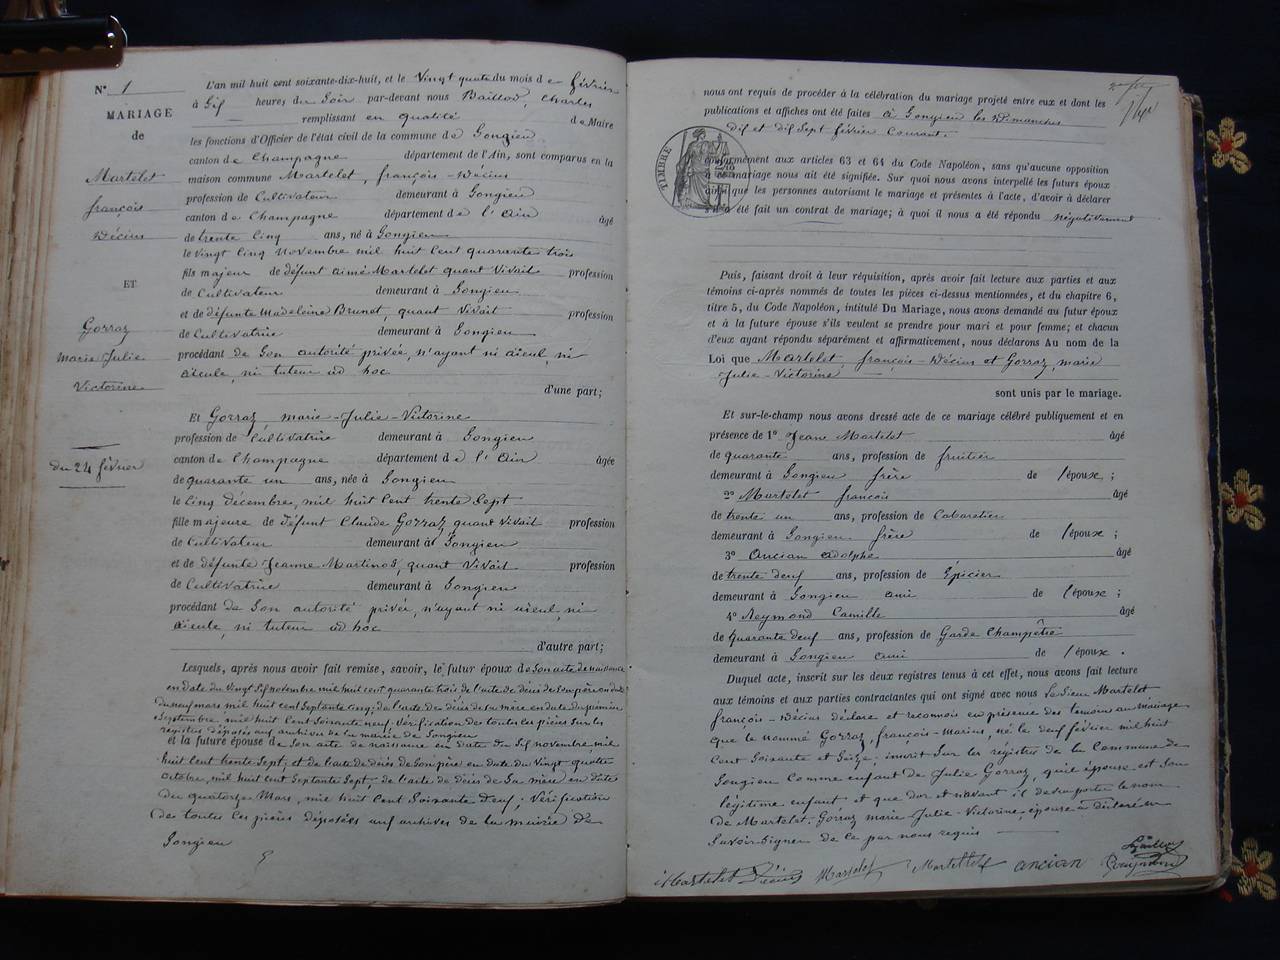 N° 1
MARIAGE
de
Martelet
françois
Décius
ET
Gorraz
Marie Julie
Victorine
du 24 février
L'an mil huit cent soixante-dix-huit, et le vingt quatre du mois de février
à Six heures du Soir par-devant nous Baillod, Charles
remplissant en qualité de Maire
les fonctions d'Officier de l'état civil de la commune de Songieu
canton de Champagne département de l'Ain, sont comparus en la
maison commune Martelet, françois-Décius
profession de Cultivateur demeurant à Songieu
canton de Champagne département de l'Ain âgé
de trente cinq ans, né à Songieu
le vingt cinq novembre mil huit cent quarante trois
fils majeur de défunt aimé Martelet quant vivait profession
de Cultivateur demeurant à Songieu
et de défunte Madeleine Brunet, quant vivait profession
de Cultivatrice demeurant à Songieu
procédant de Son autorité privée, n'ayant ni aïeul, ni
aïeule, ni tuteur ad hoc
d'une part;
Et Gorraz, marie-Julie-Victorine
profession de Cultivatrice demeurant à Songieu
canton de Champagne département de l'Ain âgée
de quarante un ans, née à Songieu
le cinq décembre, mil huit cent trente Sept
fille majeure de défunt Claude Gorraz, quant vivait profession
de Cultivateur demeurant à Songieu
et de défunte Jeanne Martinod, quant vivait profession
de Cultivatrice demeurant à Songieu
procédant de Son autorité privée, n'ayant ni aïeul, ni
aïeule, ni tuteur ad hoc
d'autre part;
Lesquels, après nous avoir fait remise, savoir, le futur époux de Son acte de naissance
en date du vingt Six novembre mil huit cent quarante trois de l'acte de décès de Son père en date
du neuf mars mil huit cent Septante cinq; de l'acte des décès de Sa mère en date du
Septembre, mil huit cent Soixante neuf. Vérification des toutes les pièces Sur les
registres déposés aux archives de la mairie de Songieu
et la future épouse de Son acte de naissance en date du Six novembre mil
huit cent trente Sept; et de l'acte de décès de Son père en date du vingt quatre
octobre, mil huit cent Septante Sept; de l'acte de décès de Sa mère en date
du quatorze Mars, mil huit cent Soixante neuf. Vérification
des toutes les pièces déposées aux archives de la mairie de
Songieu
nous ont requis de procéder à la célébration du mariage projeté entre eux et dont les
publications et affiches ont été faites à Songieu les Dimanches
dix et dix Sept février Courant
TIMBRE
conformément aux articles 63 et 64 du Code Napoléon, sans qu'aucune opposition
à ce mariage nous ait été signifiée. Sur quoi nous avons interpellé les futurs époux
ainsi que les personnes autorisant le mariage et présentes à l'acte, d'avoir à déclarer
s'il a été fait un contrat de mariage; à quoi il nous a été répondu négativement
Puis, faisant droit à leur réquisition, après avoir fait lecture aux parties et aux
témoins ci-après nommés de toutes les pièces ci-dessus mentionnées, et du chapitre 6,
titre 5, du Code Napoléon, intitulé Du Mariage, nous avons demandé au futur époux
et à la future épouse s'ils veulent se prendre pour mari et pour femme; et chacun
d'eux ayant répondu séparément et affirmativement, nous déclarons Au nom de la
Loi que Martelet, françois-Décius et Gorraz, marie
Julie-Victorine
sont unis par le mariage.
Et sur-le-champ nous avons dressé acte de ce mariage célébré publiquement et en
présence de 1° Jean Martelet âgé
de quarante ans, profession de fruitier
demeurant à Songieu frère de l'époux;
2° Martelet françois âgé
de trente un ans, profession de Cabaretier
demeurant à Songieu frère de l'époux;
3° Ancian adolphe âgé
de trente deux ans, profession de Épicier
demeurant à Songieu ami de l'époux;
4° Reymond Camille âgé
de quarante deux ans, profession de Garde Champêtre
demeurant à Songieu ami de l'époux.
Duquel acte, inscrit sur les deux registres tenus à cet effet, nous avons fait lecture
aux témoins et aux parties contractantes qui ont signé avec nous Le Sieur Martelet
françois-Décius déclare et reconnois en présence des témoins au mariage
que le nommé Gorraz, françois-Marius, né le deux février mil huit
cent Soixante et Seize, inscrit Sur les registres de la Commune de
Songieu Comme enfant de Julie Gorraz, qu'il épouse est Son
légitime enfant et que dor et navant il devra porter le nom
de Martelet. Gorraz marie Julie-Victorine épouse a déclaré ne
Savoir Signer de ce par nous requis
Martelet Décius Martelet Martelet ancian Reymond
Baillod